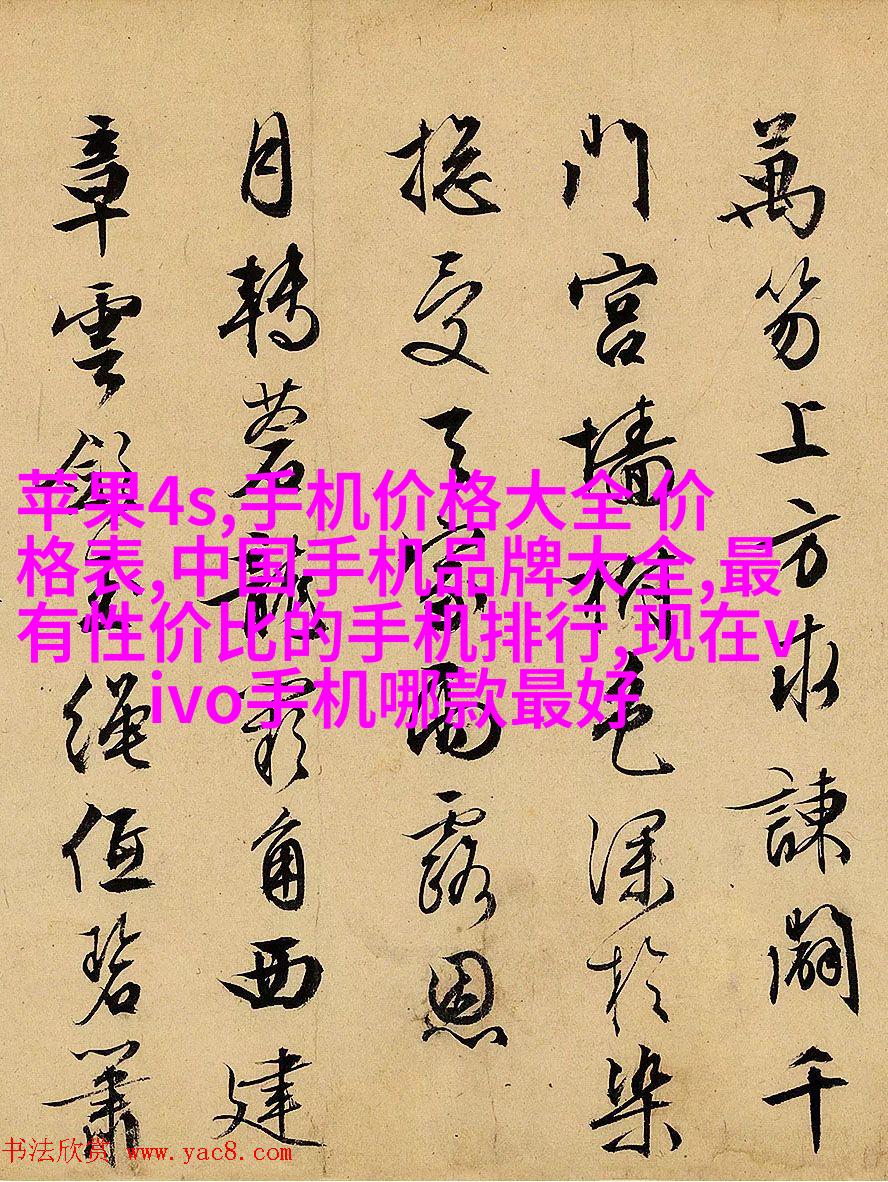 萬笏上方求諫闢千
門宮墻柳色深於染
揔受天家雨露恩
月轉蒼龍闕角西建
章雲斂玉繩低碧簫
苹果4s,手机价格大全 价
格表,中国手机品牌大全,最
有性价比的手机排行,现在v
ivo手机哪款最好
书法欣赏 www.yac8.com